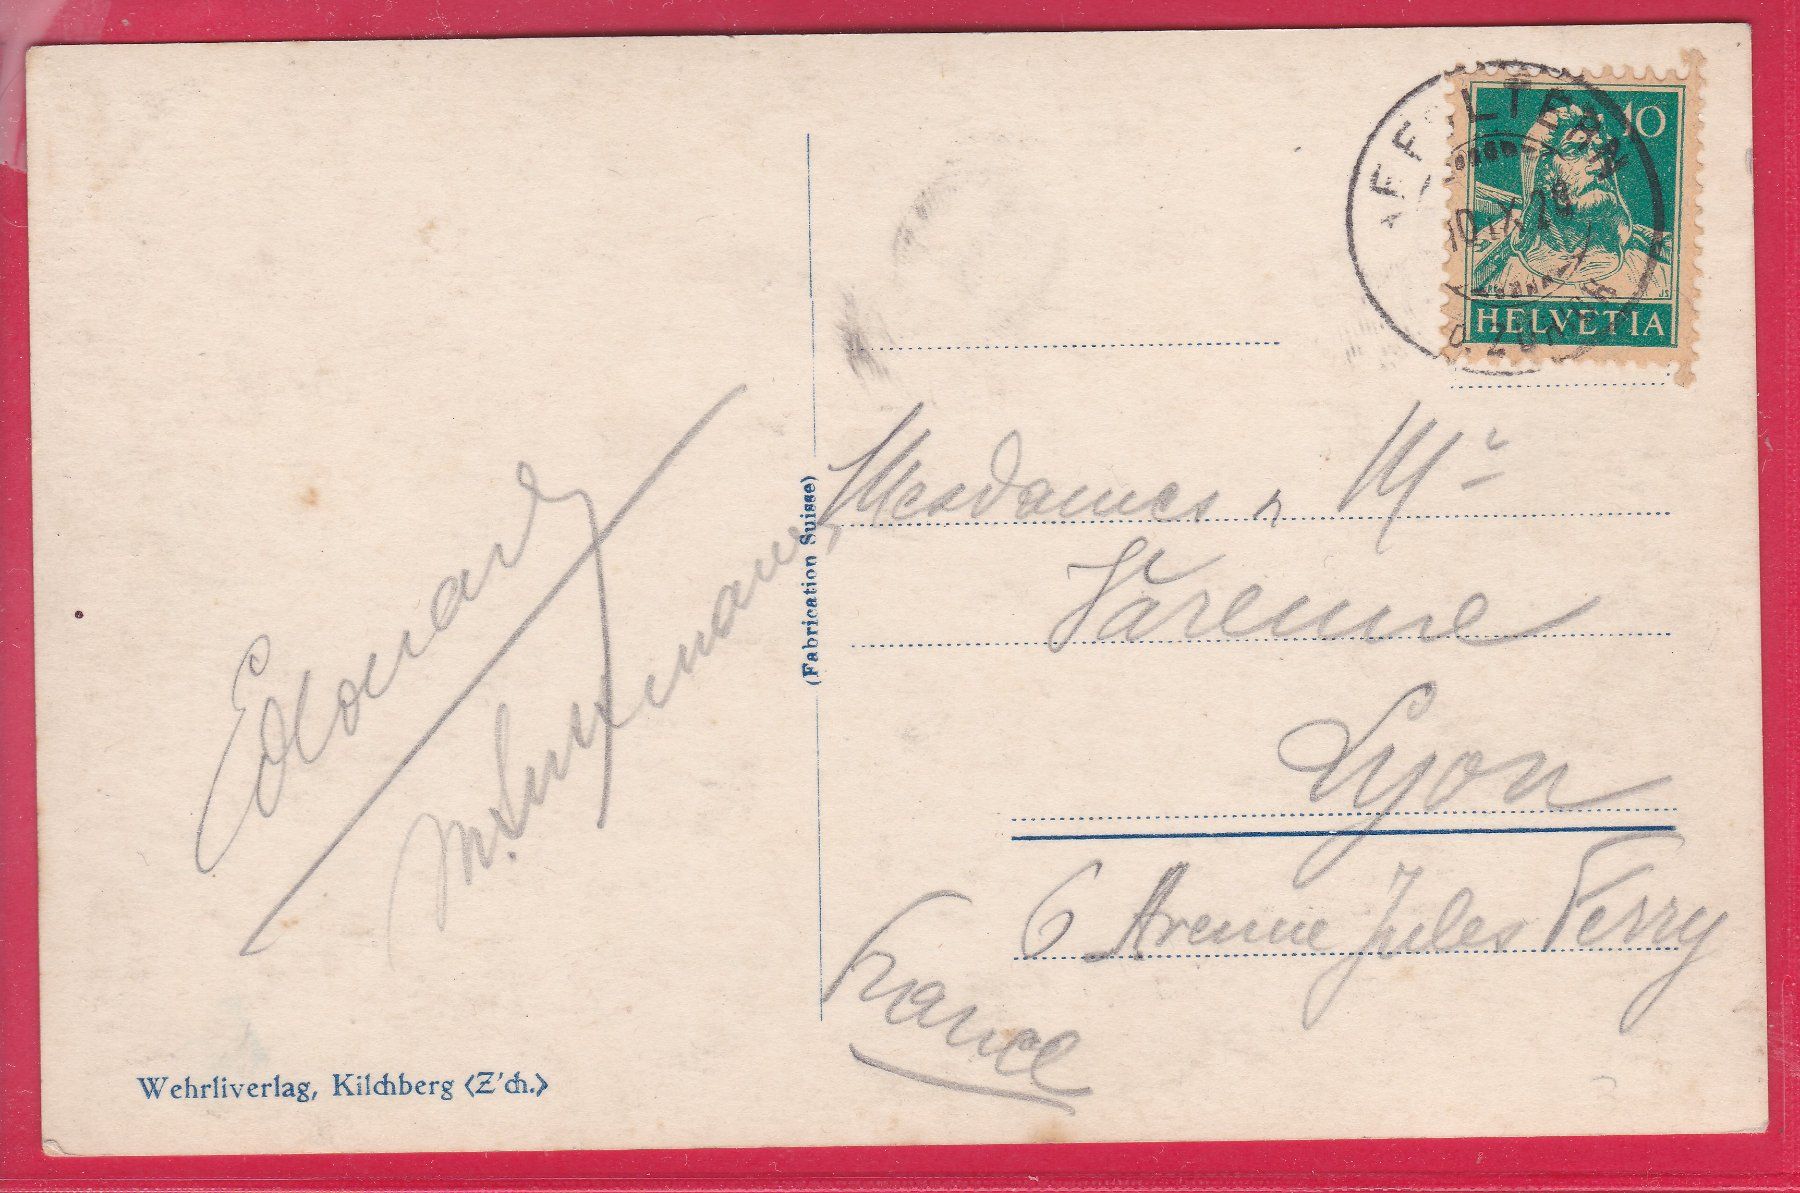 AFFOLTERN
10.IX.28
HELVETIA
10
Edouard
(Fabrication Suisse)
Mesdames, Mr
Varenne
Lyon
6 Avenue Jules Ferry
France
Wehrliverlag, Kilchberg (Z'ch.)